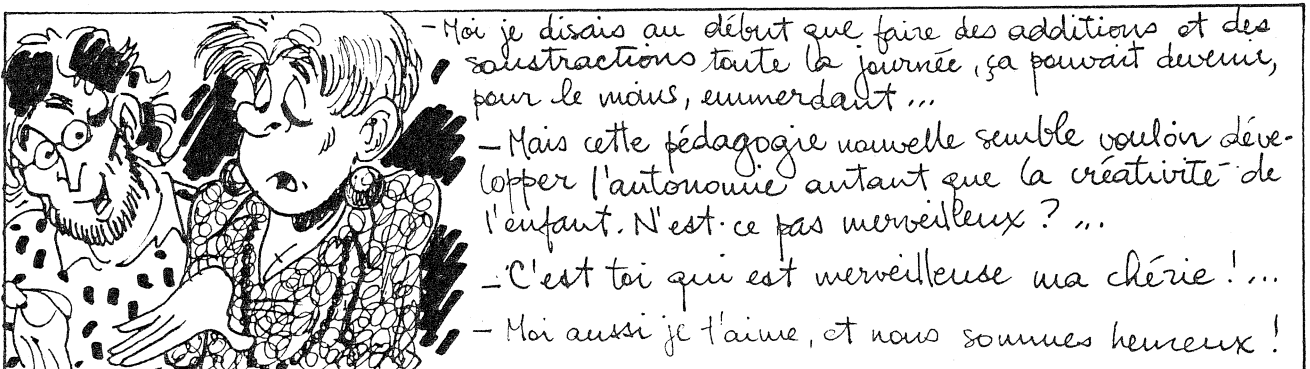 - Moi je disais au début que faire des additions et des
soustractions toute la journée, ça pouvait devenir,
pour le moins, emmerdant...
- Mais cette pédagogie nouvelle semble vouloir déve-
lopper l'autonomie autant que la créativité de
l'enfant. N'est-ce pas merveilleux ? ...
- C'est toi qui est merveilleuse ma chérie ! ...
- Moi aussi je t'aime, et nous sommes heureux !